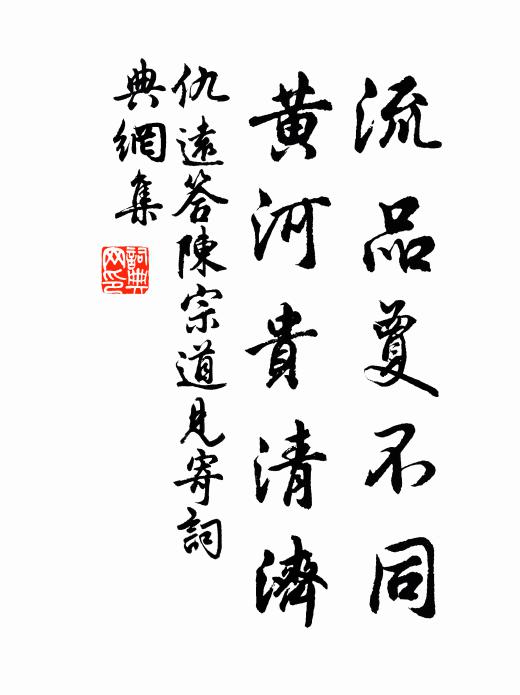 流品夐不同
黄河貴清濟
仇遠答陳宗道見寄詞
典網集
詞典
网印